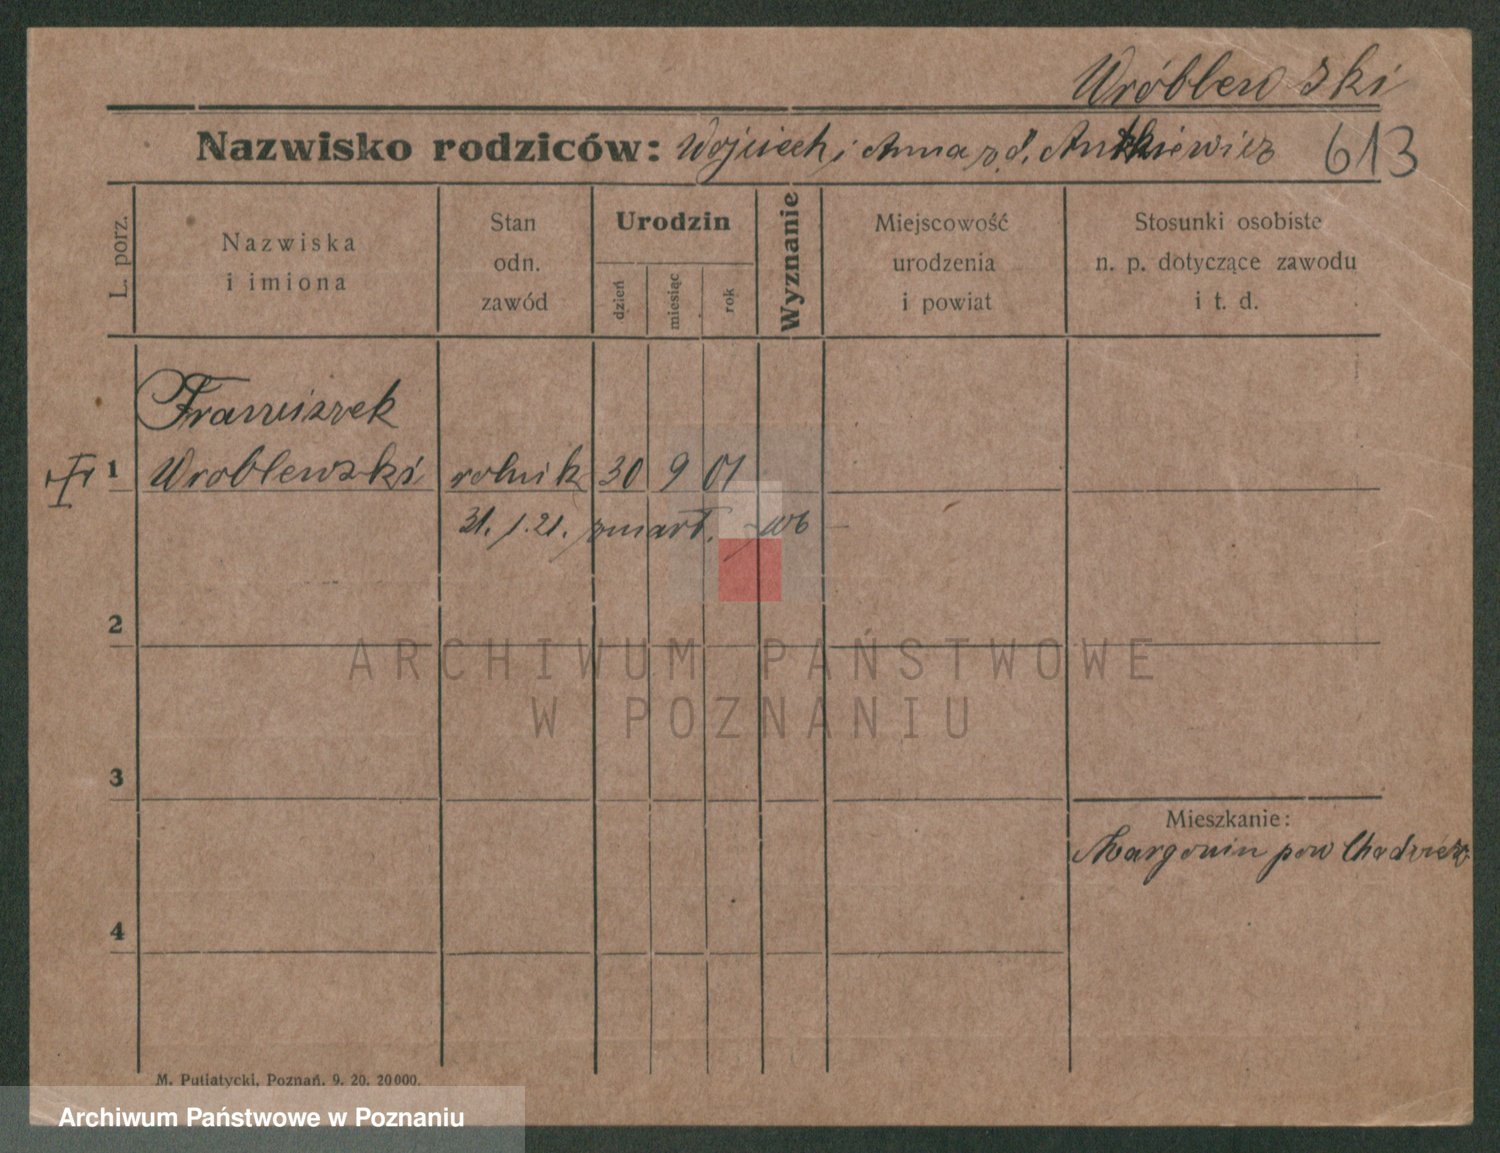 Wróblewski
Nazwisko rodziców: Wojciech i Anna z d. Antkiewicz 613
L. porz.
Nazwiska
i imiona
Stan
odn.
zawód
Urodzin
dzień
miesiąc
rok
Wyznanie
Miejscowość
urodzenia
i powiat
Stosunki osobiste
n. p. dotyczące zawodu
i t. d.
Franciszek
1 Wroblewski rolnik 30 9 01
31. 1. 21. zmarł.
2
ARCHIWUM PAŃSTWOWE
W POZNANIU
3
Mieszkanie:
Margonin pow Chodzież
4
M. Putiatycki, Poznań. 9. 20. 20000.
Archiwum Państwowe w Poznaniu